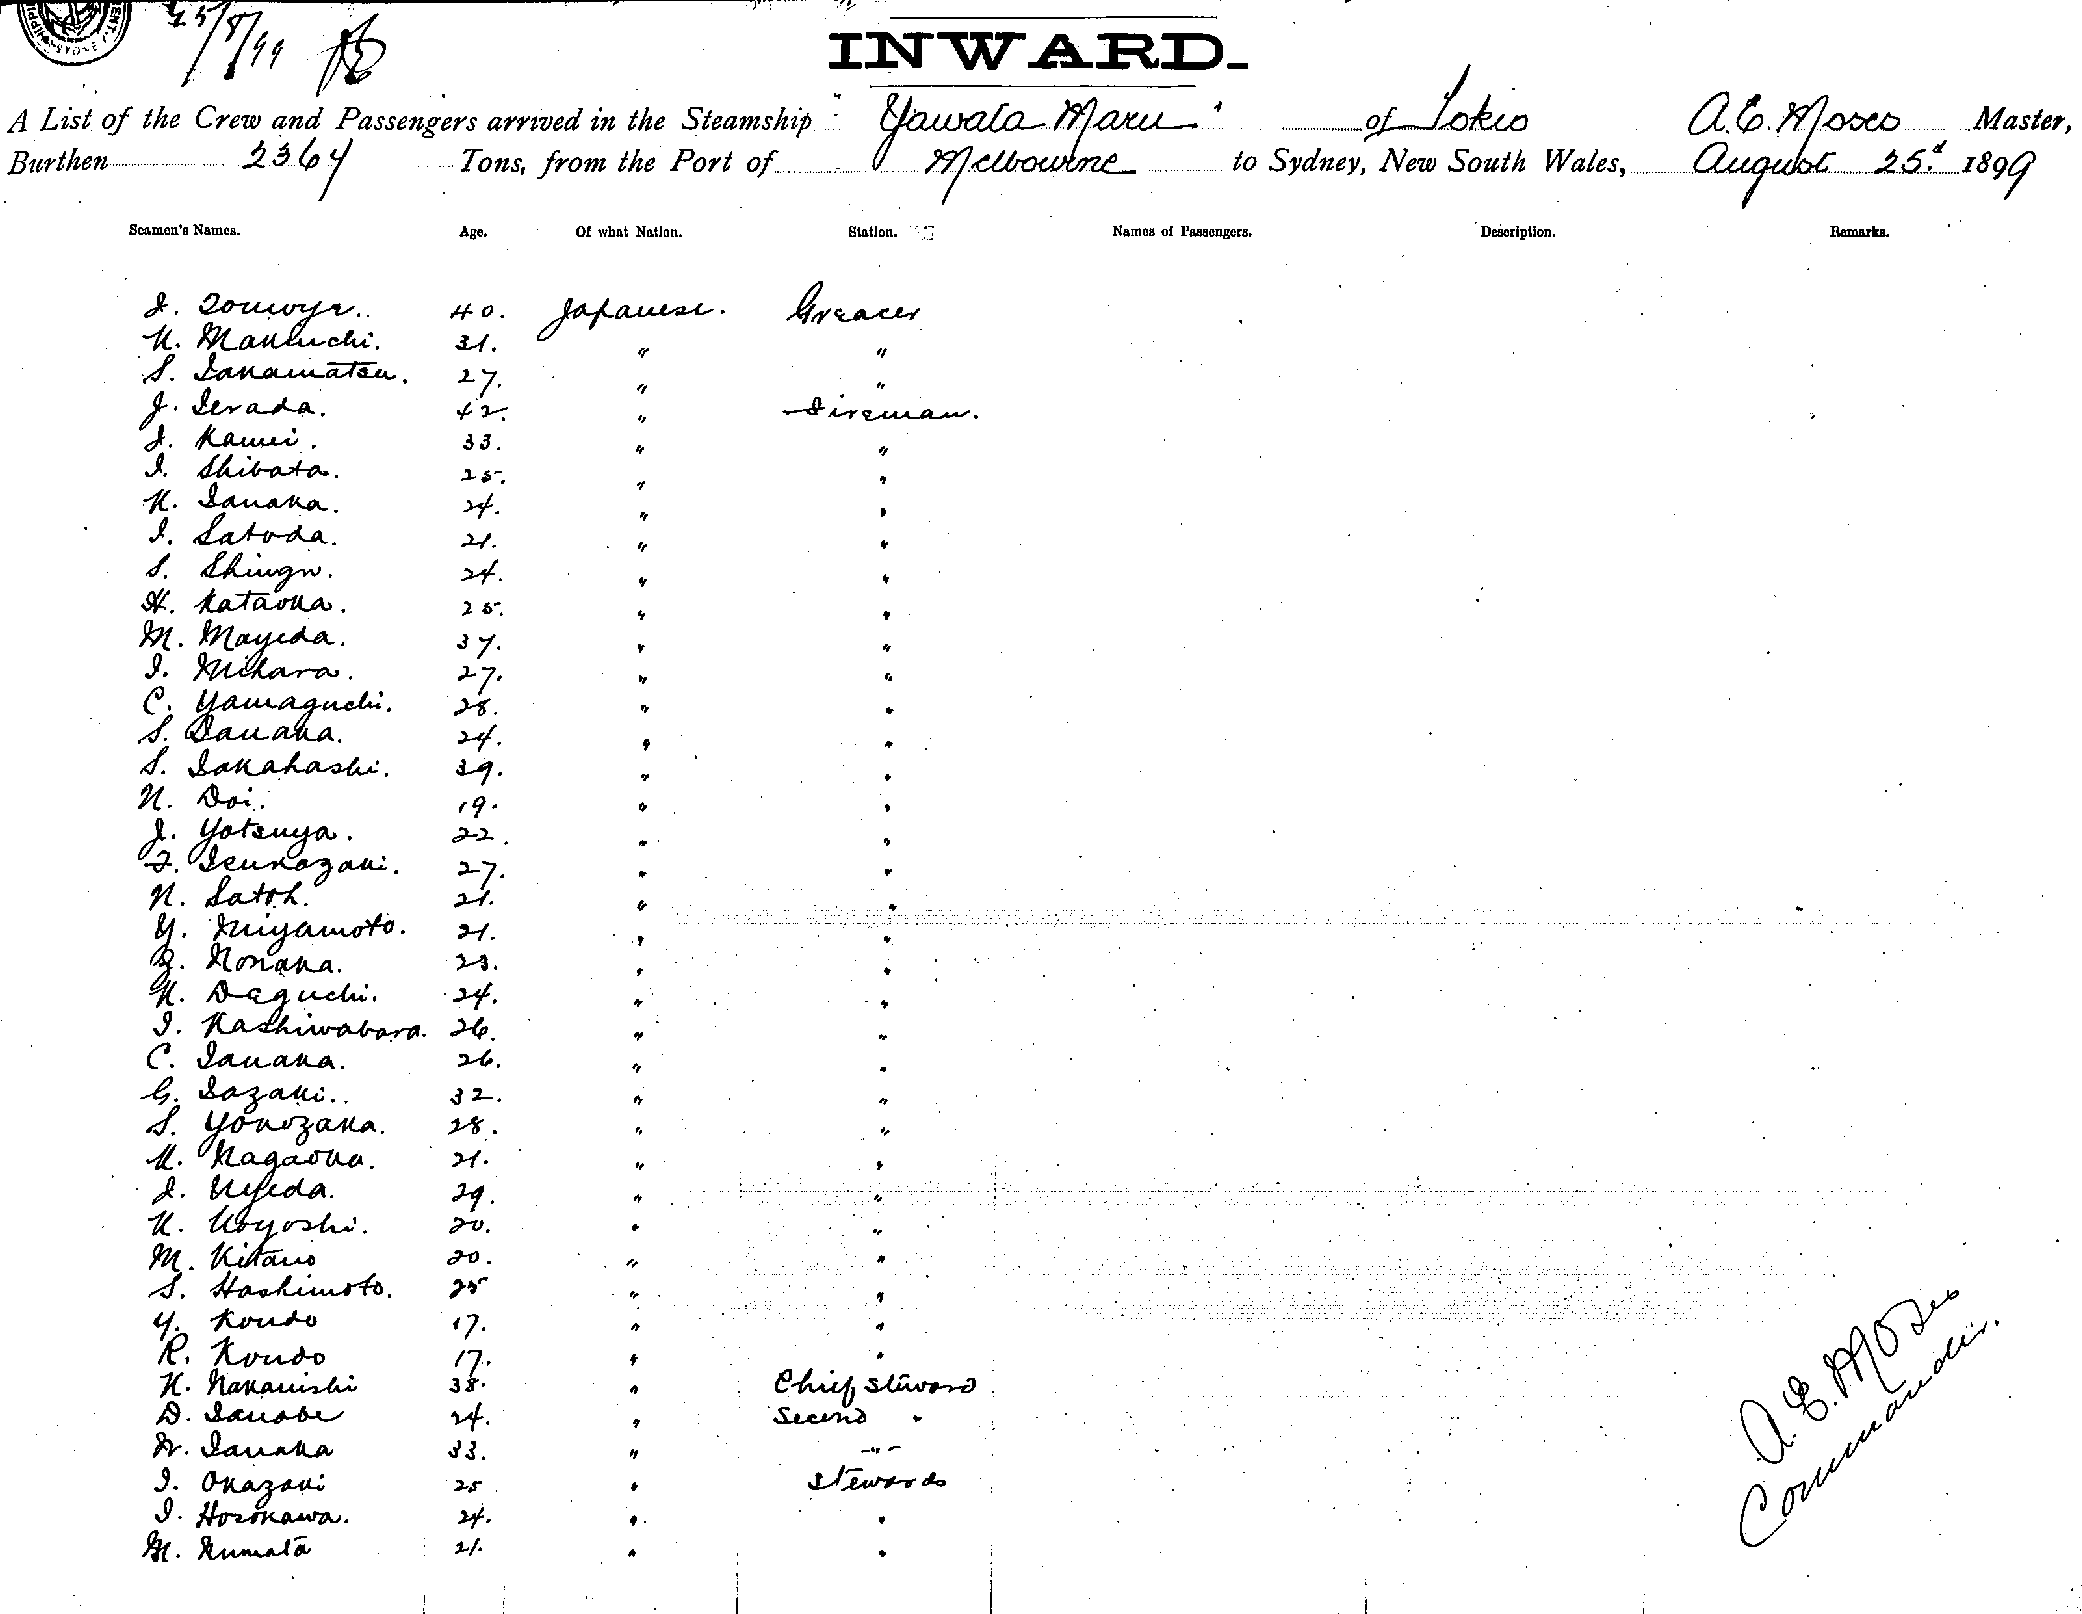 25/8/99
INWARD.
A List of the Crew and Passengers arrived in the Steamship "Yawata Maru" of Tokio A. E. Moses Master,
Burthen 2364 Tons, from the Port of Melbourne to Sydney, New South Wales, August 25.d 1899
Seamen's Names. Age. Of what Nation. Station. Names of Passengers. Description. Remarks.
40. Japanese. Greaser
K. Makiuchi. 31. " "
S. Takamatsu. 27. " "
J. Terada. 42. " Fireman.
J. Kamei. 33. " "
I. Shibata. 25. " "
K. Tanaka. 24. " "
I. Satoda. 21. " "
S. Shingu. 24. " "
H. Kataoka. 25. " "
M. Mayeda. 37. " "
I. Mihara. 27. " "
C. Yamaguchi. 28. " "
S. Tanaka. 24. " "
S. Takahashi. 39. " "
N. Doi. 19. " "
J. Yotsuya. 22. " "
F. Tsukazaki. 27. " "
N. Satoh. 21. " "
Y. Miyamoto. 21. " "
Z. Nonaka. 23. " "
K. Deguchi. 24. " "
I. Kashiwabara. 26. " "
C. Tanaka. 26. " "
G. Tazaki. 32. " "
S. Yokozaka. 28. " "
K. Nagaoka. 21. " "
J. Uyeda. 29. " "
K. Koyoshi. 20. " "
M. Kitano 20. " "
S. Hashimoto. 25 " "
Y. Kondo 17. " "
R. Kondo 17. " "
K. Nakanishi 38. " Chief Steward
D. Tanabe 24. " Second "
W. Tanaka 33. " "
I. Okazaki 25 " Stewards
I. Hosokawa. 24. " "
M. Numata 21. " "
A. E. Moses
Commander.